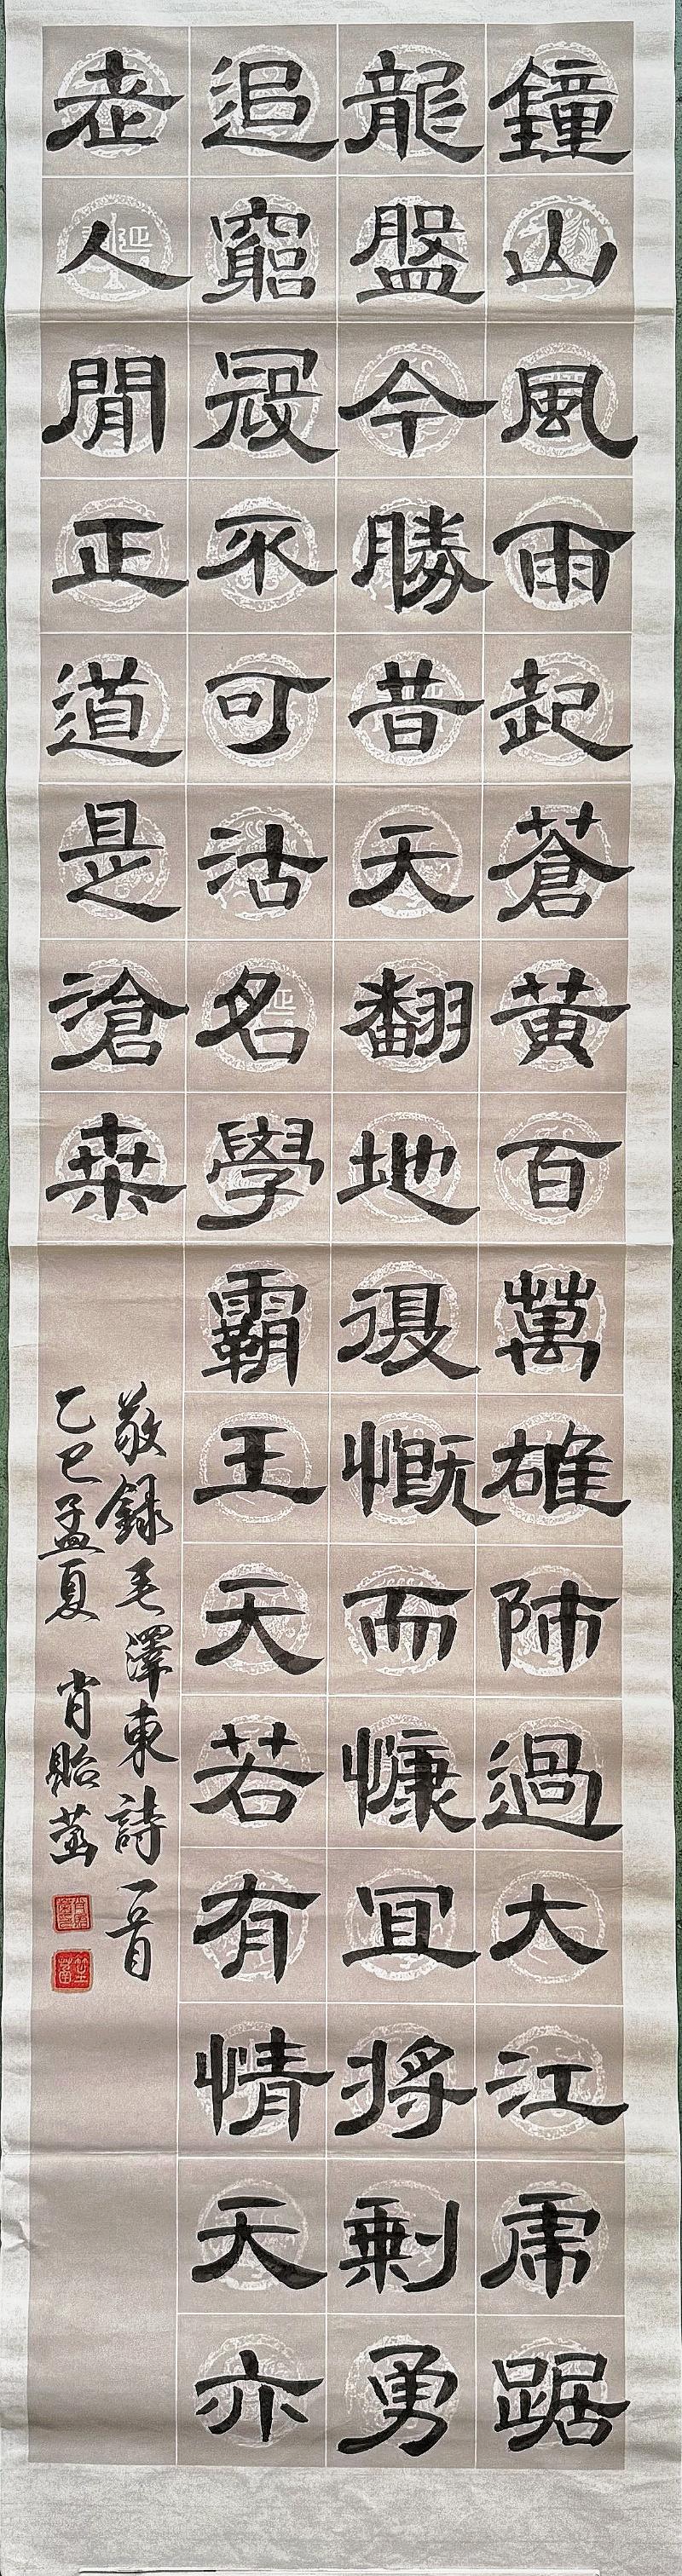 鐘山風雨起蒼黃百萬雄師過大江虎踞
龍盤今勝昔天翻地覆慨而慷冝將剩勇
追窮寇不可沽名學霸王天若有情天亦
老人閒正道是滄桒
敬録毛澤東詩一首
乙巳孟夏 肖貽